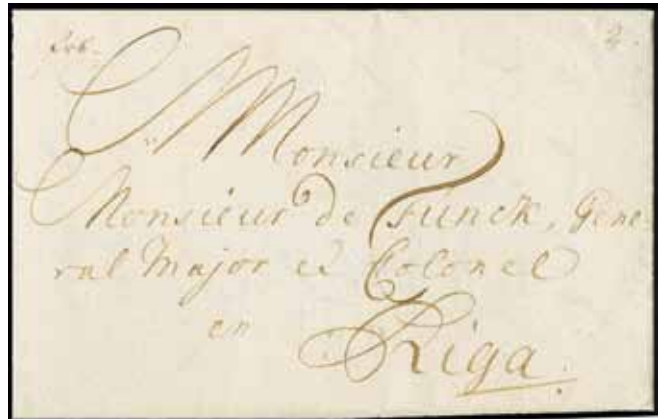 Monsieur
Monsieur de Funck, Gene-
ral Major et Colonel
en
Riga.